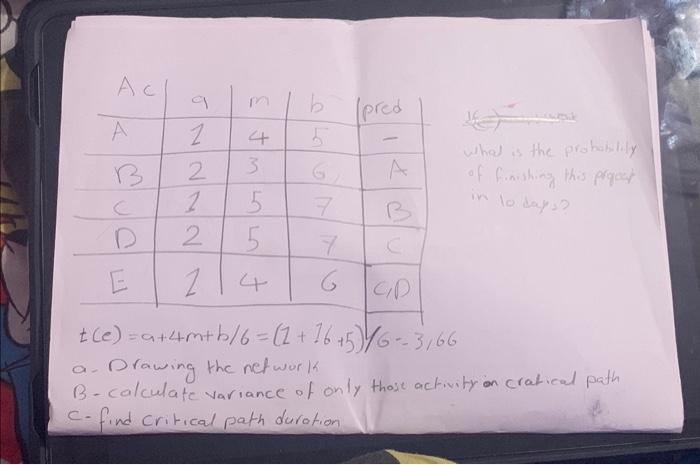 Ac a m b pred
A 1 4 5 -
B 2 3 6 A
C 1 5 7 B
D 2 5 7 C
E 1 4 6 C,D
what is the probability
of finishing this project
in 10 days?
t(e) = a+4m+b/6 = (1+16+5)/6 = 3,66
a- Drawing the network
B- calculate variance of only those activity on cratical path
c- find critical path duration